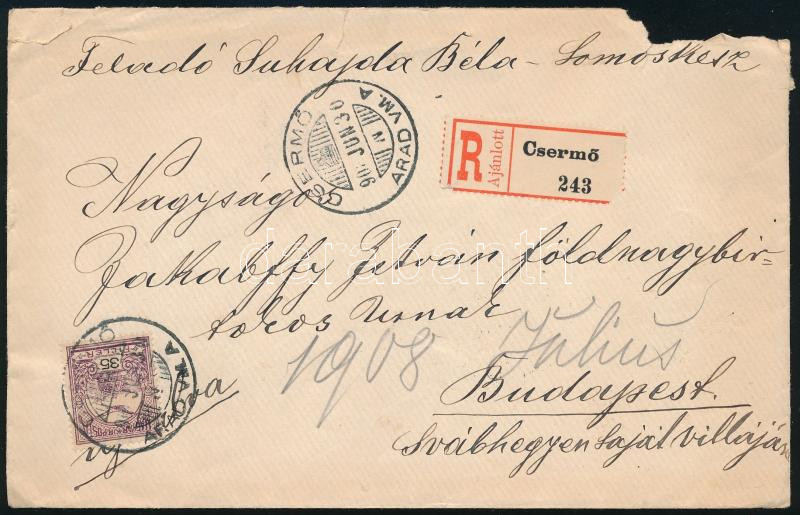 Feladó Suhajda Béla – Somoskesz
CSERMŐ
ARAD VM. A
JUN 30
N
R
Ajánlott
Csermő
243
Nagyságos
Jakabffy István földnagybir=
tokos urnak
1908 Július
Budapest.
Svábhegyen saját villája
35
ARAD VM. A
darabanth